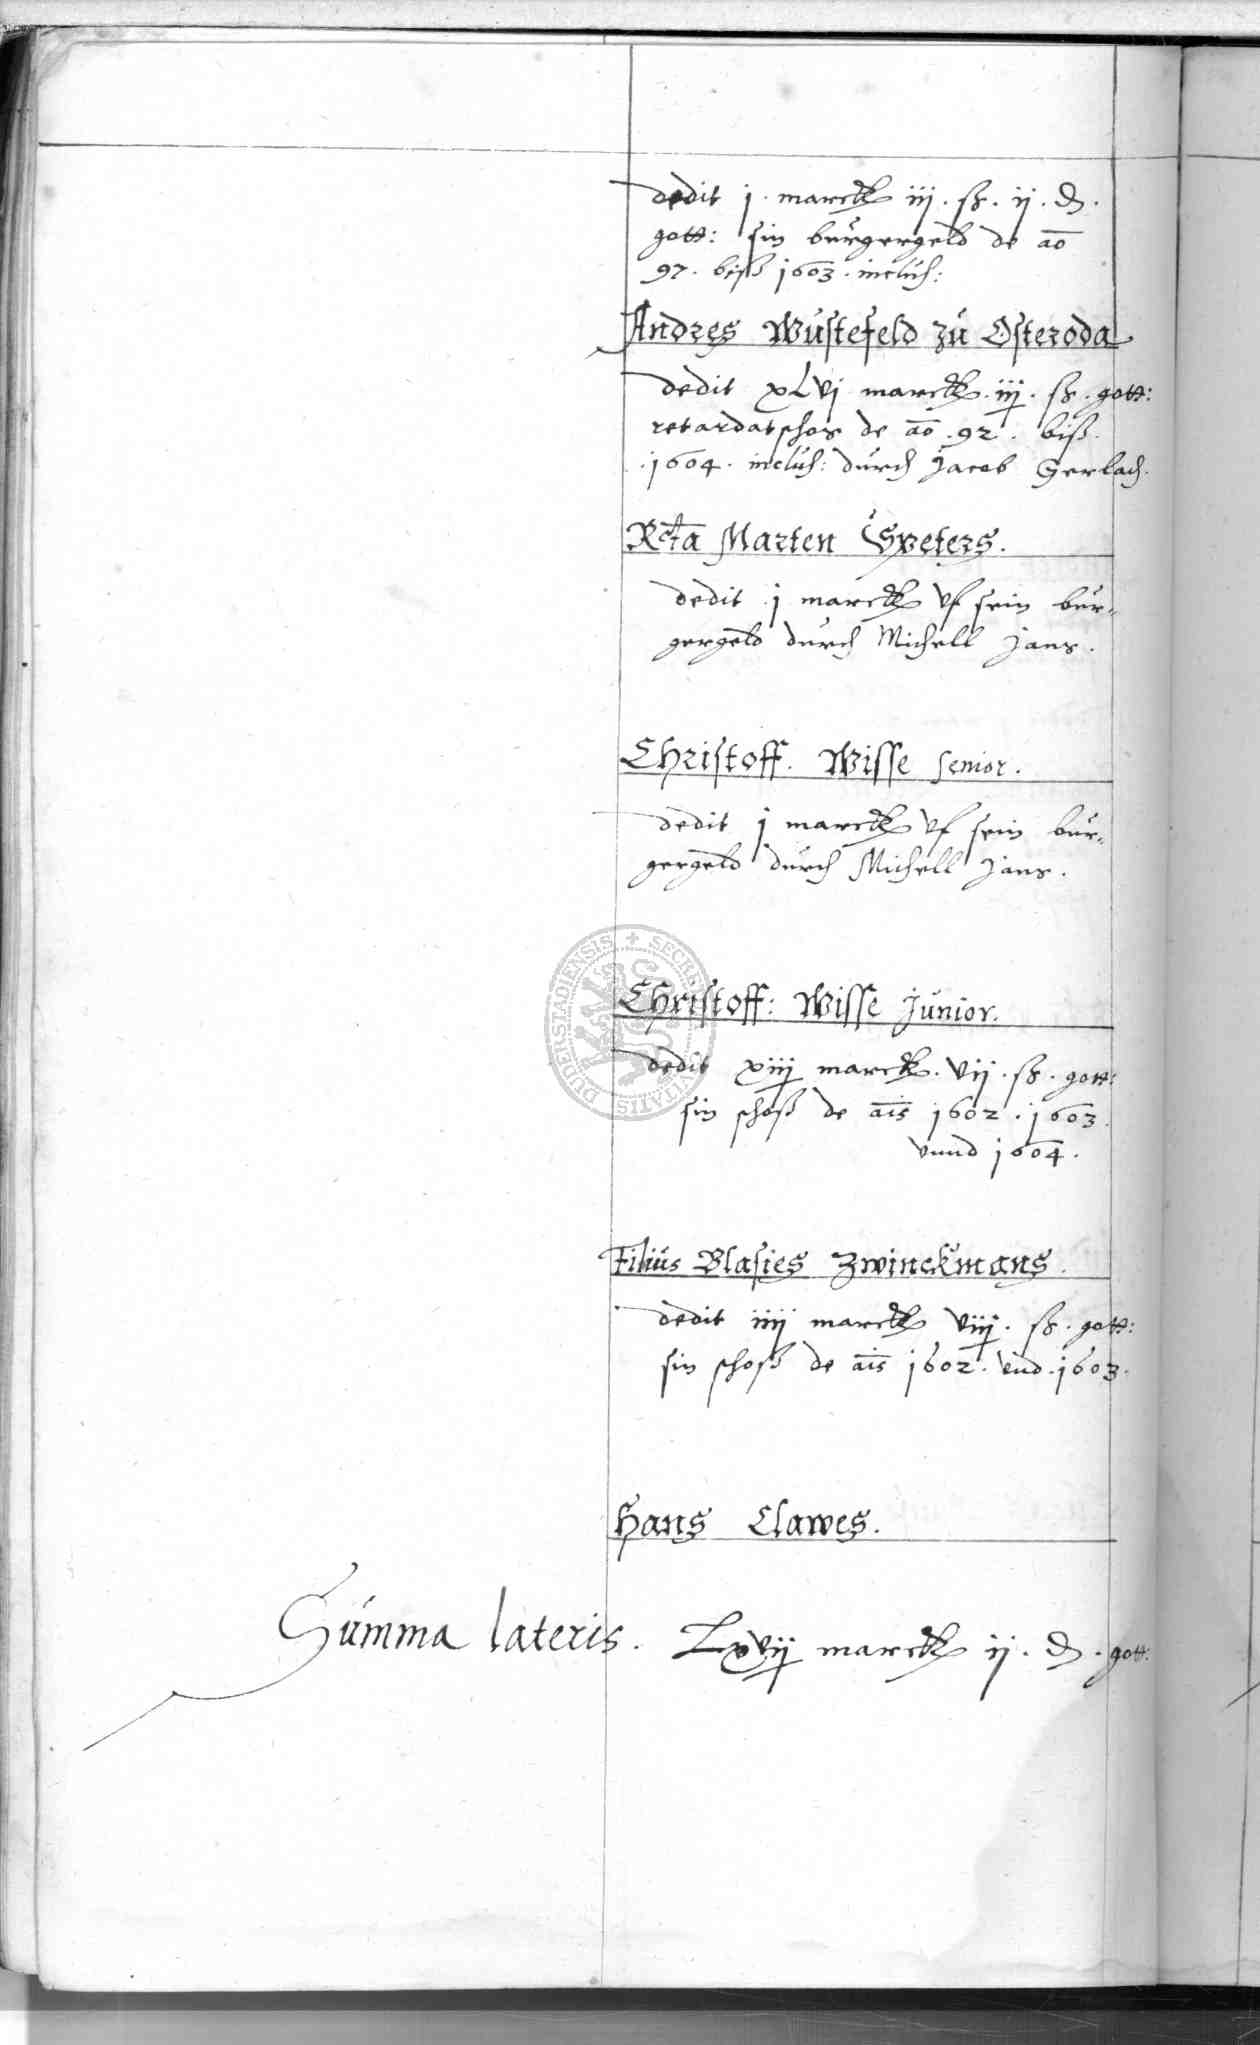 dedit j. marck iij. ß. ij. d.
gott: sin burgergeld de ao
97. biß 1603. inclus:
Andres Wustefeld zu Osteroda
dedit xLvj marck. iij. ß. gott:
retardatschos de ao. 92. biß.
.1604. inclus: durch Jacob Gerlach.
Rcta Marten Speters.
dedit j marck vf sein bur-
gergeld durch Michell Jans.
Christoff. Wisse senior.
dedit j marck vf sein bur-
gergeld durch Michell Jans.
Christoff: Wisse Junior.
dedit xiij marck. vij. ß. gott:
sin schoß de ais 1602. 1603.
vnnd 1604.
Filius Blasies Zwinckmans.
dedit iiij marck viij. ß. gott:
sin schoß de ais 1602. vnd. 1603.
Hans Clawes.
Summa lateris. Lxvij marck ij. d. gott:
DUDERSTADIENSIS + SECRE VITATIS